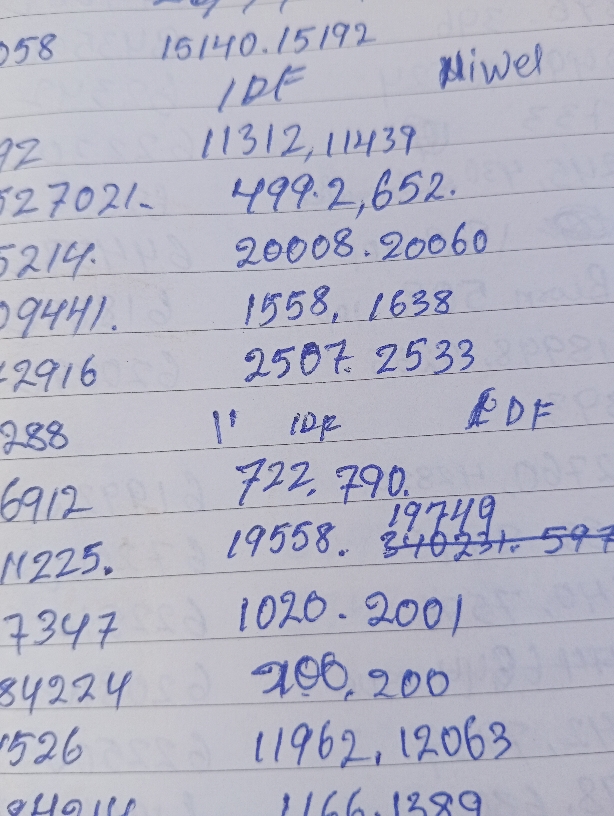 058 15140.15192
IDF
92 11312,11439
527021. 499.2,652.
5214. 20008.20060
09441. 1558, 1638
2916 2507. 2533
288 11 IDF IDF
6912 722, 790.
19749
11225. 19558.
7347 1020.2001
84224 200
1526 11962, 12063
1166.1389